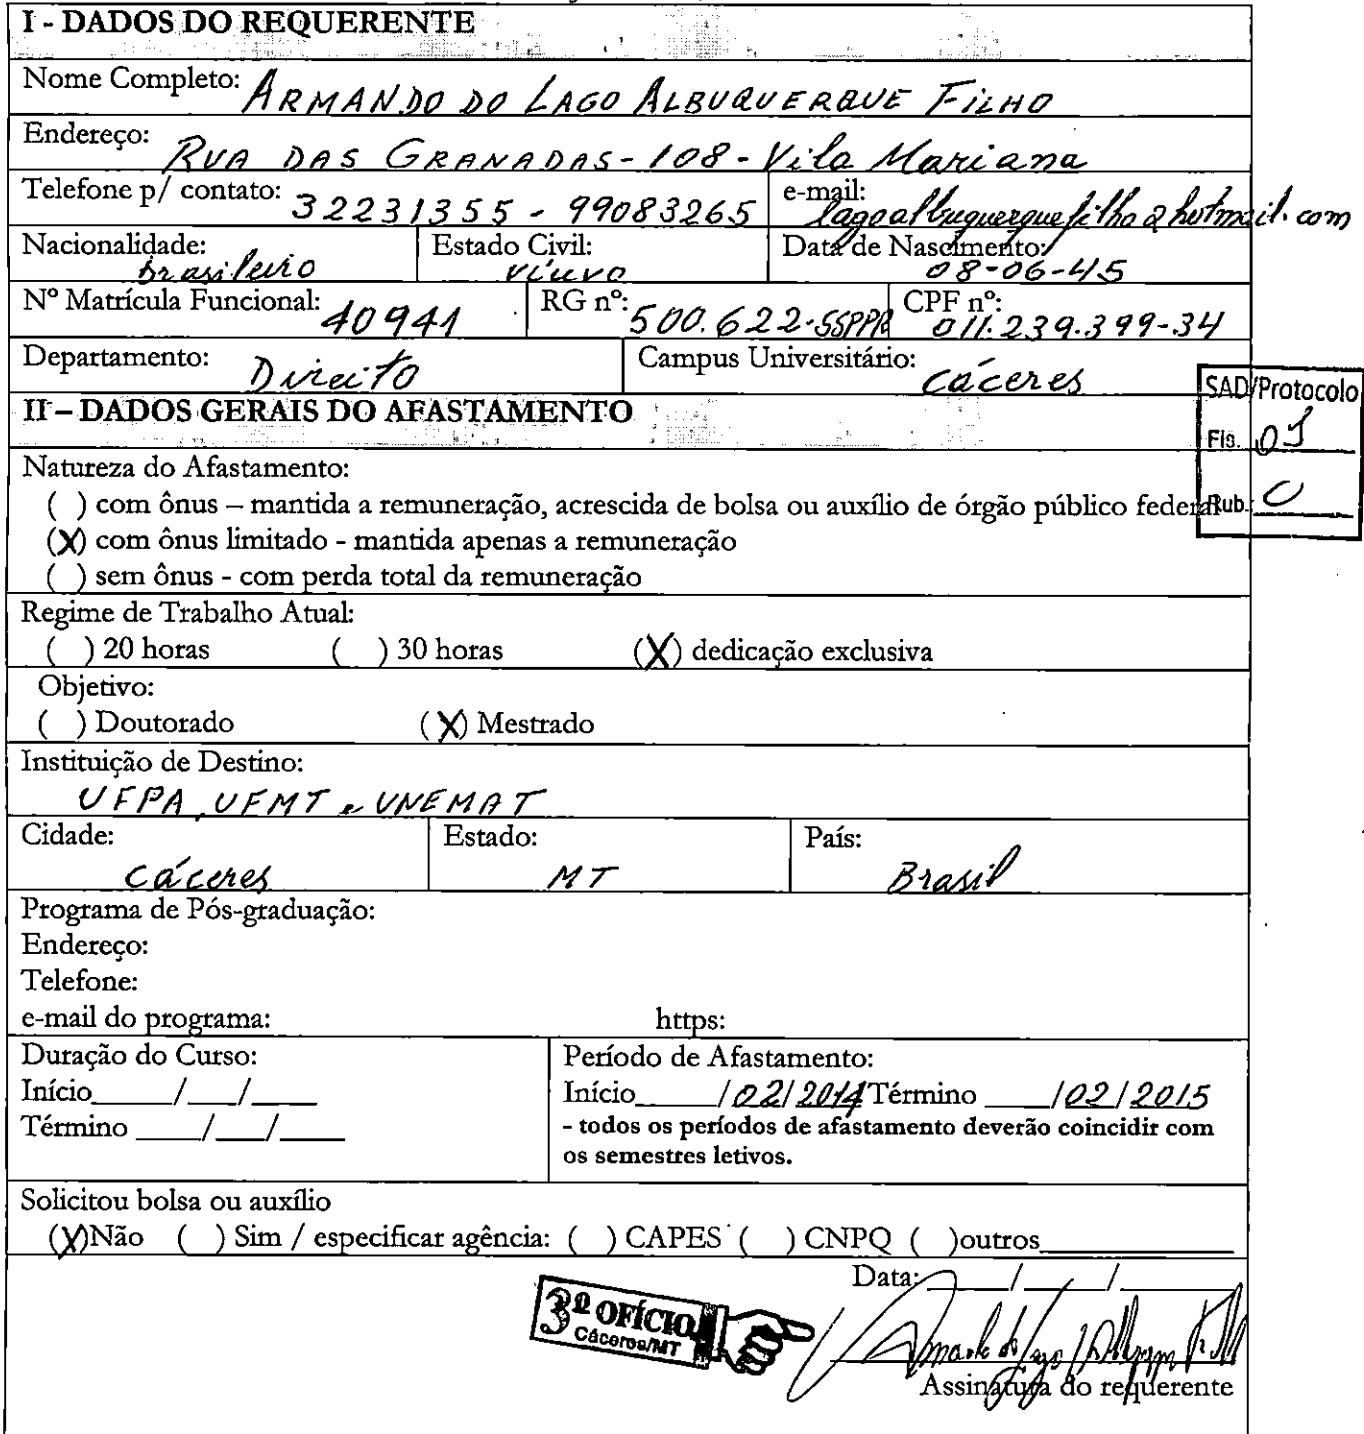 I - DADOS DO REQUERENTE
Nome Completo: ARMANDO DO LAGO ALBUQUERQUE FILHO
Endereço: RUA DAS GRANADAS-108-Vila Mariana
Telefone p/ contato: 32231355 - 99083265 e-mail: lagoalbuquerquefilho@hotmail.com
Nacionalidade: brasileiro Estado Civil: viuvo Data de Nascimento: 08-06-45
Nº Matrícula Funcional: 40941 RG nº: 500.622-SSPPR CPF nº: 011.239.399-34
Departamento: Direito Campus Universitário: Cáceres
SAD/Protocolo
Fls. 01
Rub. 
II – DADOS GERAIS DO AFASTAMENTO
Natureza do Afastamento:
( ) com ônus – mantida a remuneração, acrescida de bolsa ou auxílio de órgão público federal
(X) com ônus limitado - mantida apenas a remuneração
( ) sem ônus - com perda total da remuneração
Regime de Trabalho Atual:
( ) 20 horas ( ) 30 horas (X) dedicação exclusiva
Objetivo:
( ) Doutorado (X) Mestrado
Instituição de Destino:
UFPA, UFMT e UNEMAT
Cidade: Cáceres Estado: MT País: Brasil
Programa de Pós-graduação:
Endereço:
Telefone:
e-mail do programa: https:
Duração do Curso: Período de Afastamento:
Início_____/___/____ Início_____/02/2014 Término ____/02/2015
Término ____/___/____ - todos os períodos de afastamento deverão coincidir com
os semestres letivos.
Solicitou bolsa ou auxílio
(X)Não ( ) Sim / especificar agência: ( ) CAPES ( ) CNPQ ( )outros____________
Data:____/____/____
3º OFÍCIO
Cáceres/MT
Armando do Lago Albuquerque Filho
Assinatura do requerente